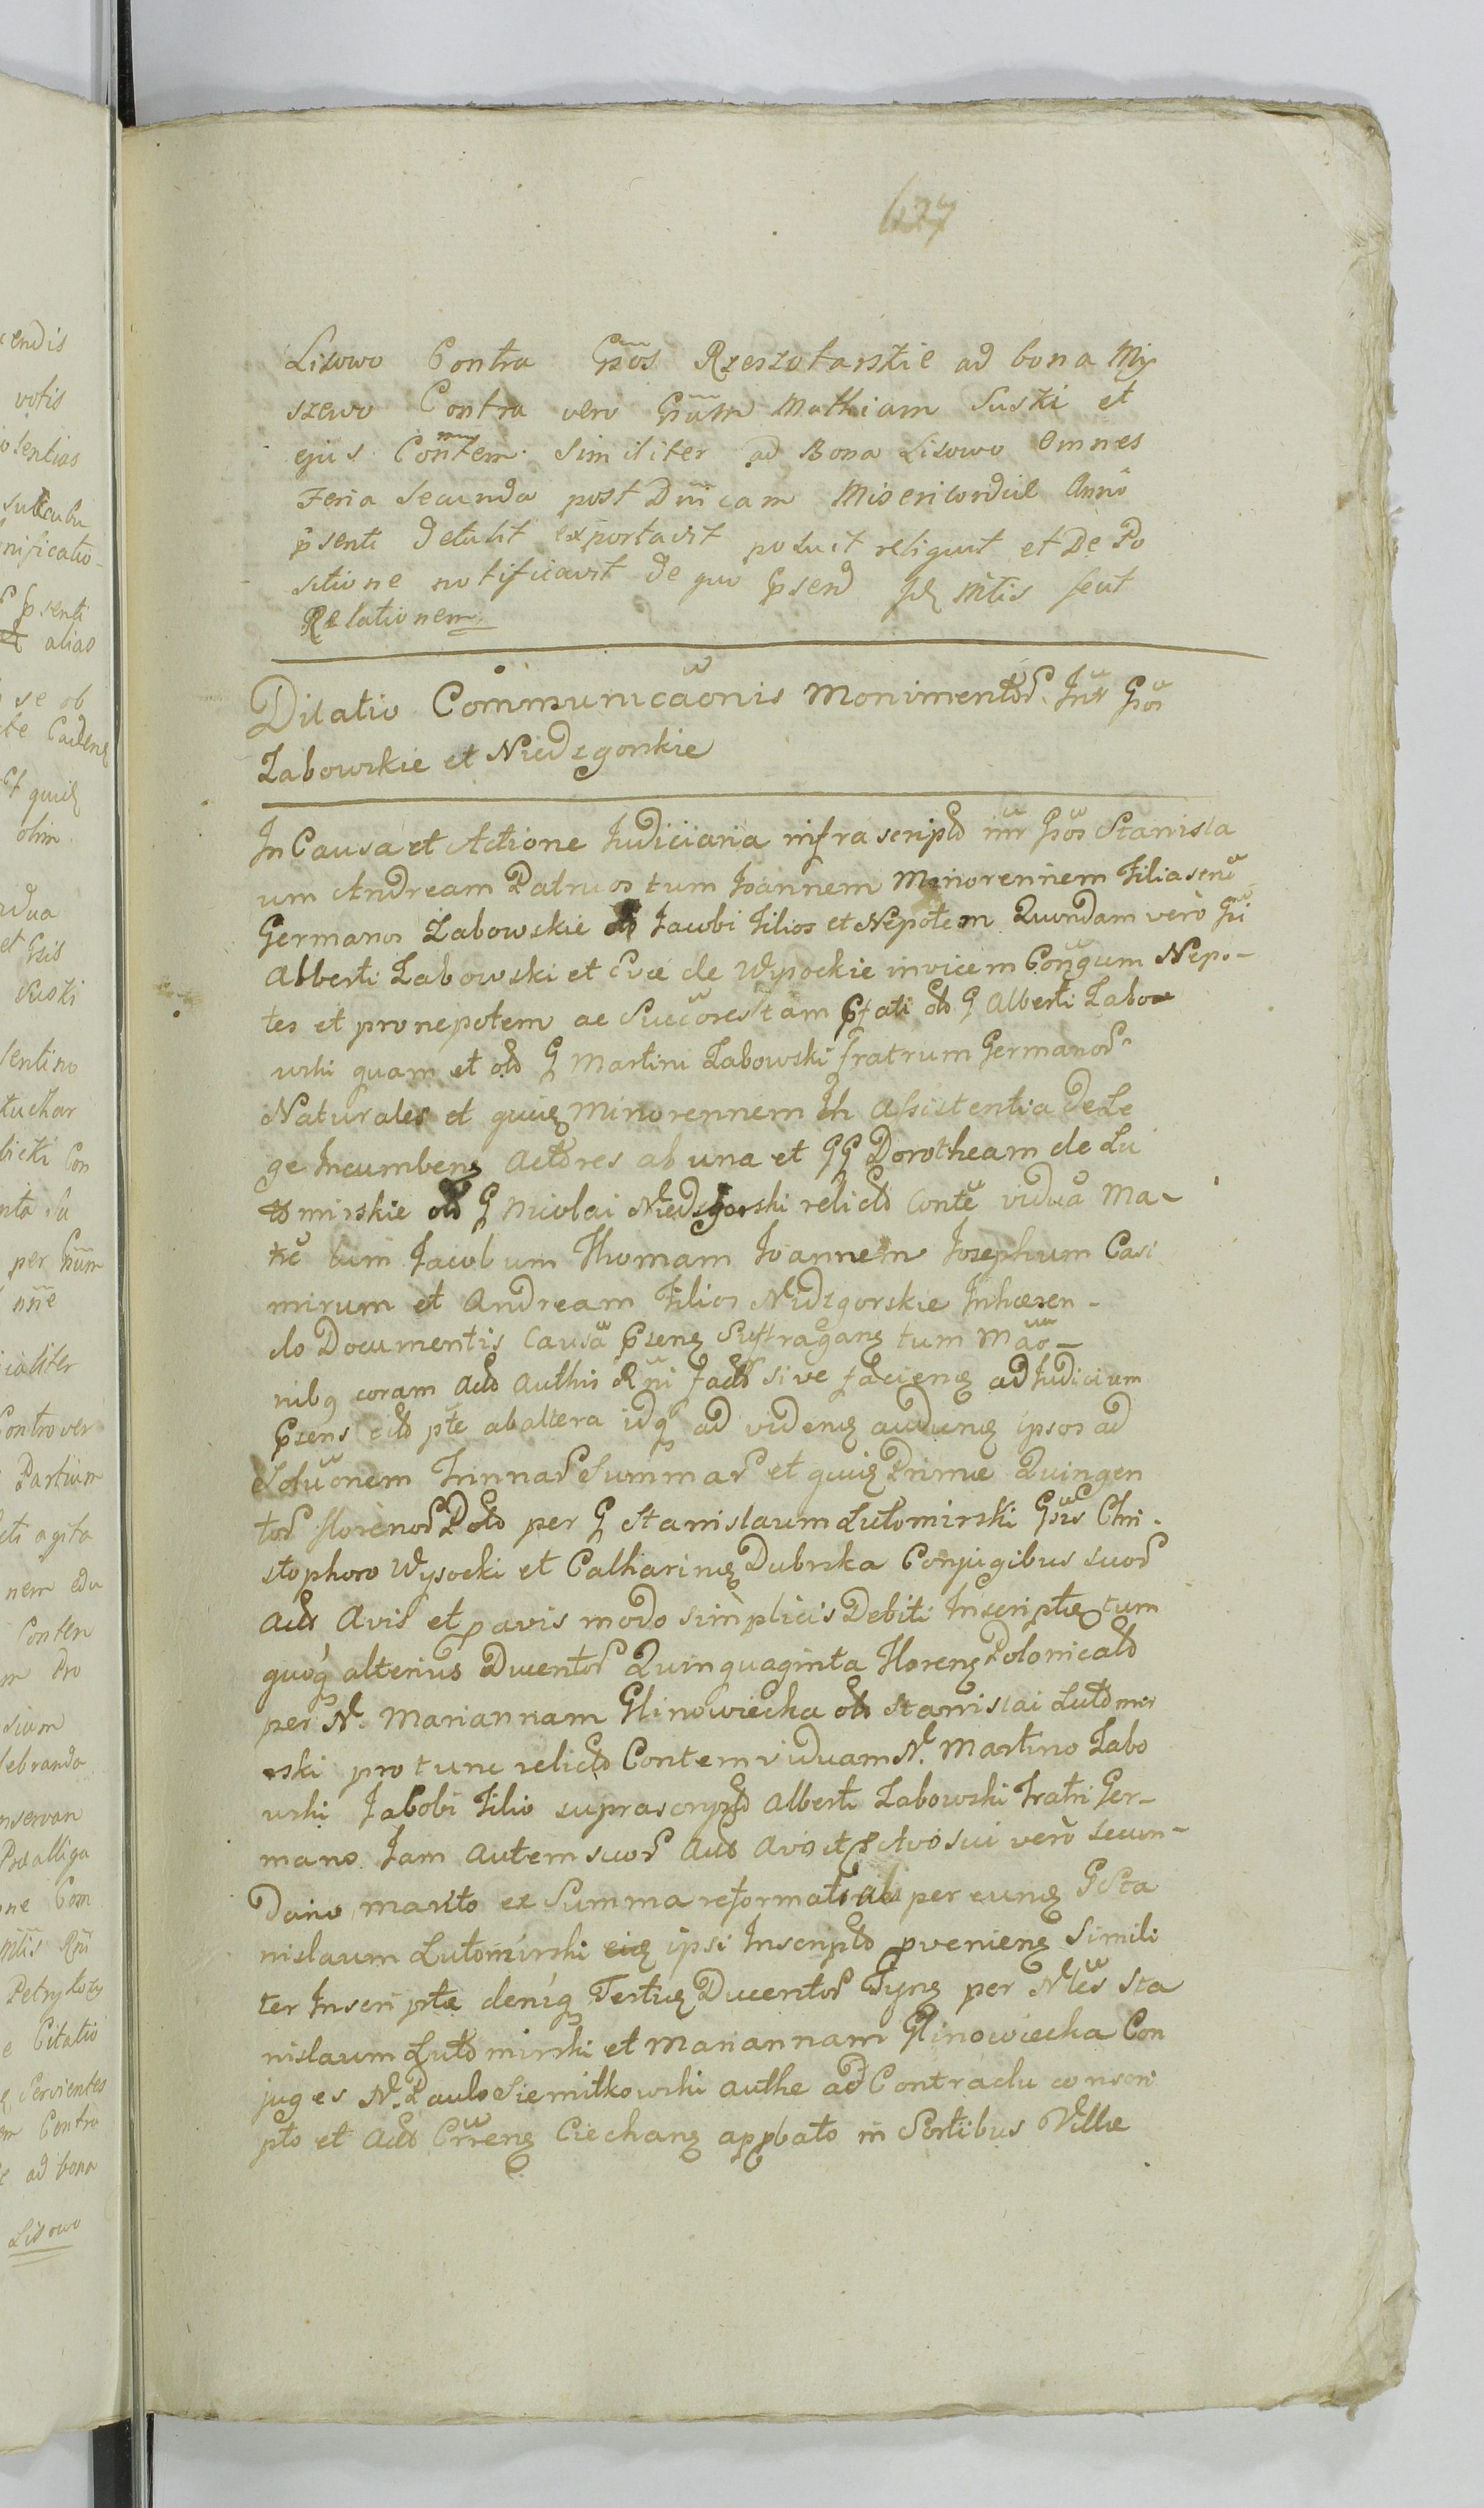 627
Lisowo Contra Gnos Rzeszotarskie ad bona My
szewo Contra vero Gnum Mathiam Suski et
ejus Contem Similiter ad Bona Lisowo Omnes
Feria Secunda post Dnicam Misericordiæ Anno
psenti detulit exportavit posuit reliquit et De Po
sitione notificavit de quo psend mtis fecit
Relationem
Dilatio Communicaonis Monimentor. Int Gnos
Zabowskie et Niedzgorskie
In Causa et Actione Judiciaria infra script inr Gnos Stanisla
um Andream Patruos tum Joannem Minorennem
Germanos Zabowskie olo Jacobi Filios et Nepotem Quondam vero Gni
Alberti Zabowski et Evæ de Wysockie invicem Congum Nepo-
tes et pronepotem ac Succores tam pfati olo G Alberti Zabow
wski quam et olo G Martini Zabowski fratrum Germanor
Naturales et quidem Minorennem in Assistentia de Le
ge Incumben Actores ab una et GG Dorotheam de Lu
tomirskie olo G Nicolai Niedzgorski relict Conte viduã Ma-
trẽ tum Jacobum Thomam Joannem Josephum Casi
mirum et Andream Filios Niedzgorskie Inhæren-
do Documentis Causã psen Suffragan tum Mão-
nibq coram Act Authen Rni fact sive facien ad Judicium
psens cit pte ab altera idq ad viden audien ipsos ad
Soluonem Trinnar Summar et quid Primæ Quingen
tor florenor Pol per G Stanislaum Lutomirski Gnis Chri-
stophoro Wysocki et Catharinæ Dubrska Conjugibus suor
Act Avis et pavis modo simplicis Debiti Inscriptæ tum
quoq alterius Ducentor Quinquaginta Floren Polonicald
per N. Mariannam Glinowiecka olo Stanislai Lutomir
rski pro tunc relict Contem viduam N. Martino Zabo
wski Jabobi Filio suprascrypt Alberti Zabowski Fratri Ger-
mano Jam autem suor Act Avo et pavo sui vero Secun-
dario marito ex Summa reformat per eund G Sta
nislaum Lutomirski ipsi Inscript pvenien Simili
ter Inscriptæ deniq Tertiæ Ducentor per Nles Sta
nislaum Lutomirski et Mariannam Glinowiecka Con
juges N. Paulo Siemitkowski authe ad Contractu conscri
pto et Act Crren Ciechan appbato in Sortibus Villæ
cendis
votis
alias
se ob
olim
vidua
Suski
per Gnum
Controver
Partium
nem edu
Pro
Citatio
Servientes
Contra
ad bona
Lisowo